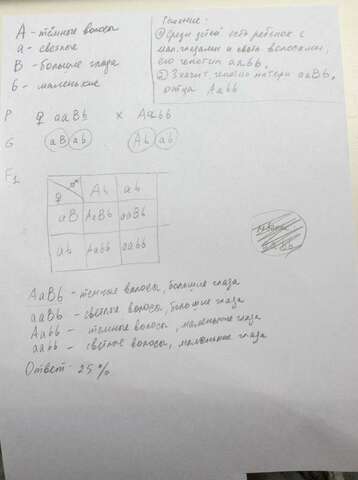 А - тёмные волосы
а - светлое
В - большие глаза
б - маленькие
Решение:
① Среди детей есть ребенок с
мал. глазами и светл волосами,
его генотип ааbb.
② Значит генотип матери ааВb,
отца Ааbb
P ♀ ааВb х Ааbb
G аВ аb Аb аb
F₁
♀ ♂ Аb аb
аВ АаВb ааВb
аb Ааbb ааbb
АаВb - темные волосы, большие глаза
ааВb - светлое волосы, большие глаза
Ааbb - темные волосы, маленькие глаза
ааbb - светлое волосы, маленькие глаза
Ответ - 25%